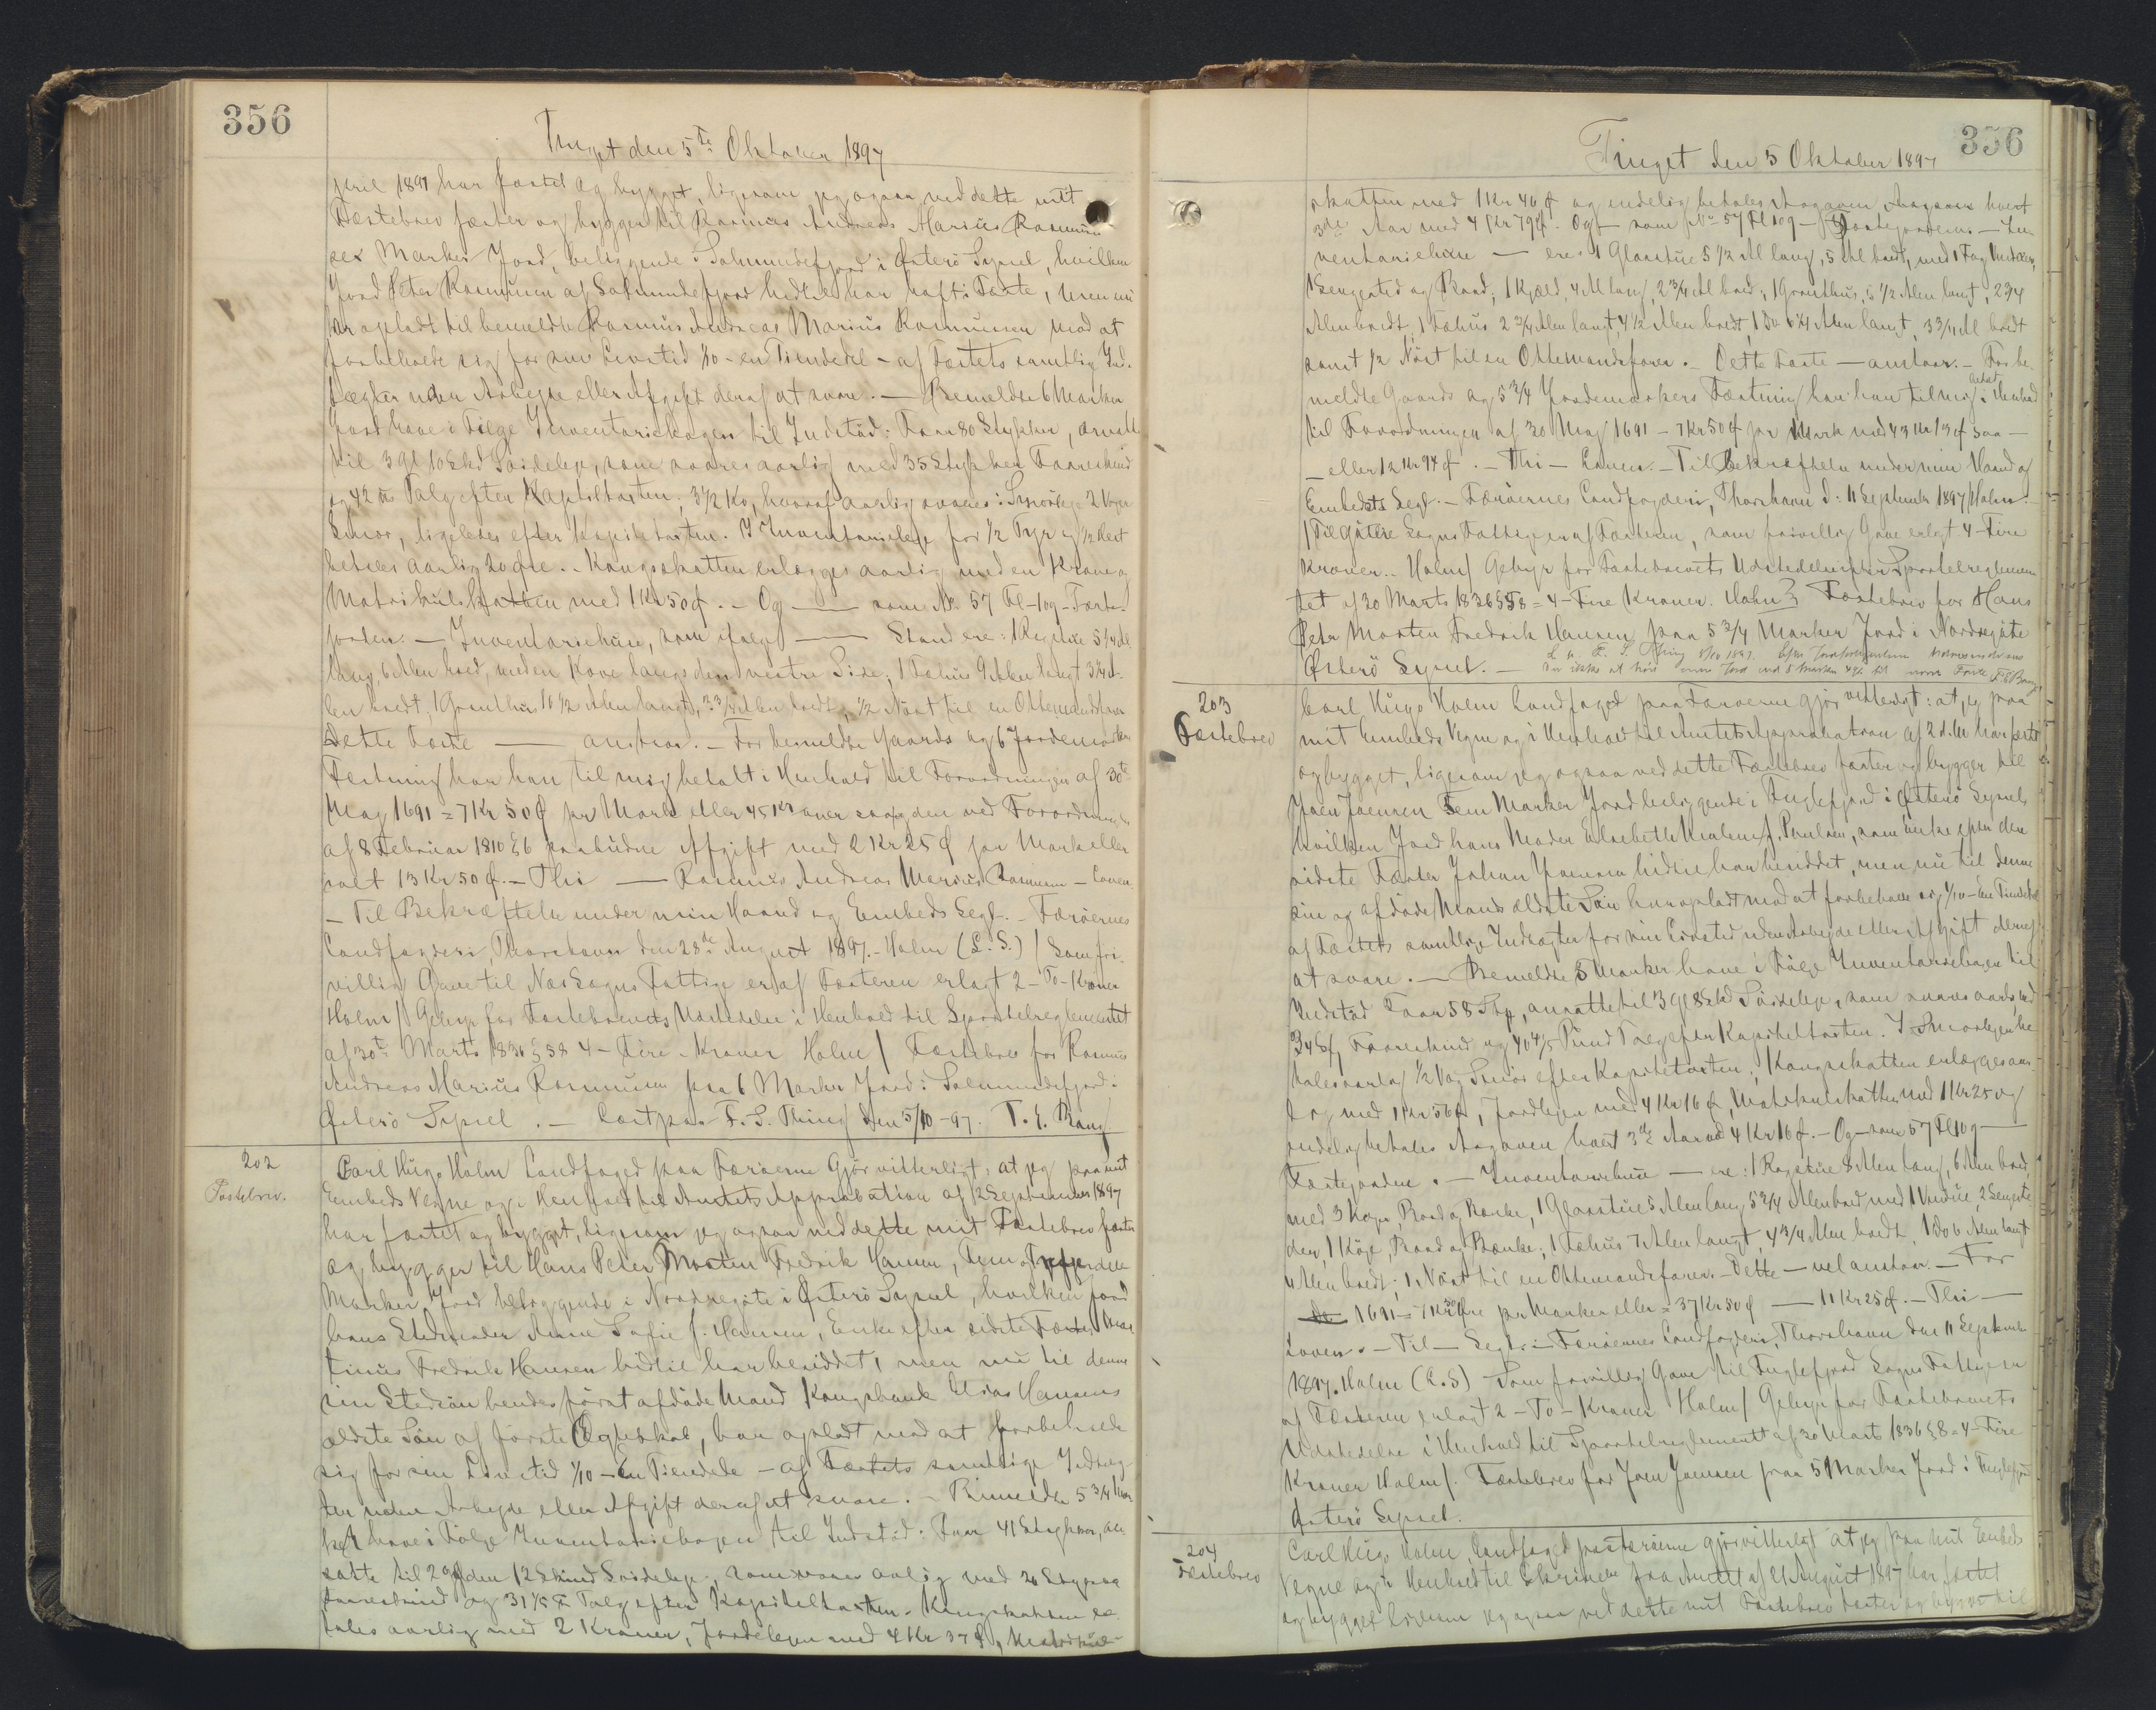 356
Tinget den 5te Oktober 1897
pril 1897 har fæstet og bygget, ligesom jeg ogsaa ved dette mit
Fæstebrev fæster og bygger til Rasmus Andreas Marius Rasmussen
sex Marker Jord, beliggende i Solmundefjord i Østerø Syssel, hvilken
Jord Peter Rasmussen af Solmundefjord hidtil har haft i Fæste, men nu
har opladt til bemeldte Rasmus Andreas Marius Rasmussen mod at
forbeholde sig for sin Livstid 1/10 - en Tiendedel - af Fæstets samtlige Ind-
tægter uden Arbejde eller Afgift deraf at svare. — Bemeldte 6 Marker
Jord have i Følge Inventariebogen til Indstød: Faar 80 Stykker, ansatte
til 3 Gl 10 Skd Soideleje, som svares aarlig med 35 Stykker Faareskind
og 42 Talg efter Kapitelstaxten; 3 1/2 Ko, hvoraf aarlig svares i Smørleje 2 Voger
Smør, ligeledes efter Kapitelstaxten. I Inventarieleje for 1/2 Tyr og 1/2 Hest
betales aarlig 20 Øre. - Kongsskatten erlægges aarlig med en Krone og
Matrikulskatten med 1 Kr 50 Ø. - Og —— som No. 57 Fl - 109 - Fæste-
jorden. — Inventariehuse, som ifølge —— Stand ere: 1 Røgstue 5 3/4 Al
lang, 6 Alen bred, med en Kove langs den vestre Side, 1 Fæhus 9 Alen langt 3 1/4 A-
len bredt, 1 Grønthus 10 1/2 Alen langt, 3 3/4 Alen bredt, 1/2 Nøst til en Ottemandsfarer
Dette Fæste —— anstaar. - For bemeldte Gaards og 6 Jordemarkers
Fæstning har han til mig betalt i Henhold til Forordningen af 30te
Maj 1691 = 7 Kr 50 Ø pr Mark eller 45 Kroner samt den ved Forordningen
af 8 Februar 1810 § 6 paabudne Afgift med 2 Kr 25 Ø pr Mark eller
ialt 13 Kr 50 Ø. - Thi —— Rasmus Andreas Marius Rasmussen - Loven.
- Til Bekræftelse under min Haand og Embeds Segl. - Færøernes
Landfogderi, Thorshavn den 28de August 1897. - Holm (L. S.) / Som fri-
villig Gave til Næs Sogns Fattige er af Fæsteren erlagt 2 - To - Kroner
Holm / Gebyr for Fæstebrevets Udstedelse i Henhold til Sportelreglementet
af 30te Marts 1836 § 58 4 - Fire - Kroner Holm / Fæstebrev for Rasmus
Andreas Marius Rasmussen paa 6 Marker Jord i Solmundefjord i
Østerø Syssel. — Læst paa F. S. Thing den 5/10 - 97. F. E. Bang
202
Fæstebrev.
Carl Hugo Holm Landfoged paa Færøerne Gjør vitterligt: at jeg paa mit
Embeds Vegne og i Henhold til Amtets Approbation af 2 September 1897
har fæstet og bygget, ligesom jeg ogsaa ved dette mit Fæstebrev fæster
og bygger til Hans Peter Morten Fredrik Hansen, Fem og Trefjerdedele
Marker Jord beliggende i Nordregøte i Østerø Syssel, hvilken Jord
hans Stedmoder Anne Sofie f. Hansen, Enke efter sidste Fæster Mar-
tinus Fredrik Hansen hidtil har besiddet, men nu til denne
sin Stedsøn hendes først afdøde Mand Kongsbonde Elias Hansens
ældste Søn af første Ægteskab, har opladt mod at forbeholde
sig for sin Livstid 1/10 - En Tiendedel - af Fæstets samtlige Indtæg-
ter uden Arbejde eller Afgift deraf at svare. - Bemeldte 5 3/4 Mar-
ker have i Følge Inventariebogen til Indstød: Faar 41 Stykker, an-
satte til 2 Gylden 12 Skind Soideleje, som svares aarlig med 26 Stykker
Faareskind og 31 1/5 Talg efter Kapitelstaxten. Kongsskatten be-
tales aarlig med 2 Kroner, Jordelejen med 4 Kr 37 Ø, Matrikul-
356
Tinget den 5 Oktober 1897
skatten med 1 Kr 46 Ø og endelig betales Avgaven hvert
3de Aar med 4 Kr 79 Ø. Og - som No 57 Fl 109 - Fæstejorden. - In-
ventariehuse — ere: 1 Glasstue 5 1/2 Al lang, 5 Al bredt, med 1 Fag Vinduer,
1 Sengested og Bord, 1 Kjæld, 4 Al lang, 2 3/4 Al bred, 1 Grønthus, 5 1/2 Alen langt, 2 3/4
Alen bredt, 1 Fæhus 2 3/4 Alen langt, 4 1/2 Alen bredt, 1 Do 6 1/4 Alen langt, 3 3/4 Al bredt
samt 1/2 Nøst til en Ottemandsfarer. - Dette Fæste — anstaar. - For be-
meldte Gaards og 5 3/4 Jordemarkers Fæstning har han til mig betalt i Henhold
til Forordningen af 30 Maj 1691 - 7 Kr 50 Ø pr Mark med 43 Kr 13 Ø saa —
— eller 12 Kr 94 Ø. - Thi - Loven. - Til Bekræftelse under min Haand og
Embedets Segl. - Færøernes Landfogderi, Thorshavn d: 11 September 1897 Holm.
/ Til Gøtu Sogns Fattige er af Fæsteren, som frivillig Gave erlagt 4 - Fire
Kroner. - Holm / Gebyr for Fæstebrevets Udstedelse efter Sportelreglemen-
tet af 30 Marts 1836 § 58 = 4 - Fire Kroner. Holm / Fæstebrev for Hans
Peter Morten Fredrik Hansen paa 5 3/4 Marker Jord i Nordregøte
Østerø Syssel. —
203
Fæstebrev
Carl Hugo Holm Landfoged paa Færøerne gjør vitterligt: at jeg paa
mit Embeds Vegne og i Henhold til Amtets Approbation af 2 d.M. har fæstet
og bygget, ligesom jeg ogsaa ved dette Fæstebrev fæster og bygger til
Joen Joensen Fem Marker Jord beliggende i Fuglefjord i Østerø Syssel,
hvilken Jord hans Moder Elsebeth f. Poulsen, som Enke efter den
sidste Fæster Johan Joensen hidtil har besiddet, men nu til denne
sin og afdøde Mands ældste Søn har opladt mod at forbeholde sig 1/10 - En Tiendedel
af Fæstets samtlige Indtægter for sin Livstid uden Arbejde eller Afgift deraf
at svare. — Bemeldte 5 Marker have i Følge Inventariebogen til
Indstød Faar 58 Stk, ansatte til 3 Gl 8 Skd Soideleje, som svares aarlig med
34 St. Faareskind og 40 4/5 Pund Talg efter Kapitelstaxten. I Smørleje be-
tales aarlig 1/2 Vog Smør efter Kapitelstaxten; Kongsskatten erlægges aar-
lig med 1 Kr 56 Ø, Jordlejen med 4 Kr 16 Ø, Matrikulskatten med 1 Kr 25 og
endelig betales Avgaven hvert 3de Aar med 4 Kr 16 Ø. - Og - som 57 Fl 109 —
Fæstejorden. — Inventariehuse — ere: 1 Røgstue 8 Alen lang, 6 Alen bred,
med 3 Køjer, Bord og Bænke, 1 Glasstue 5 Alen lang 5 3/4 Alen bred med 1 Vindue, 2 Sengeste-
der, 1 Køje, Bord og Bænke, 1 Fæhus 7 Alen langt, 4 3/4 Alen bredt, 1 Do 6 Alen langt
4 Alen bredt; 1 Nøst til en Ottemandsfarer. - Dette — vel anstaar. — For
— 1691 = 7 Kr 50 Øre pr Marken eller = 37 Kr 50 Ø — 11 Kr 25 Ø. - Thi —
Loven. - Til - Segl. - Færøernes Landfogderi, Thorshavn den 11 September
1897. Holm (L.S) Som frivillig Gave til Fuglefjord Sogns Fattige er
af Fæsteren erlagt 2 - To - Kroner Holm / Gebyr for Fæstebrevets
Udstedelse i Henhold til Sportelreglementet af 30 Marts 1836 § 58 = 4 - Fire
Kroner Holm /. Fæstebrev for Joen Joensen paa 5 Marker Jord i Fuglefjord
Østerø Syssel.
204
Fæstebrev
Carl Hugo Holm, Landfoged paa Færøerne gjør vitterligt at jeg paa mit Embeds
Vegne og i Henhold til Skrivelse fra Amtet af 21 August 1897 har fæstet
og bygget ligesom jeg ogsaa ved dette mit Fæstebrev fæster og bygger til